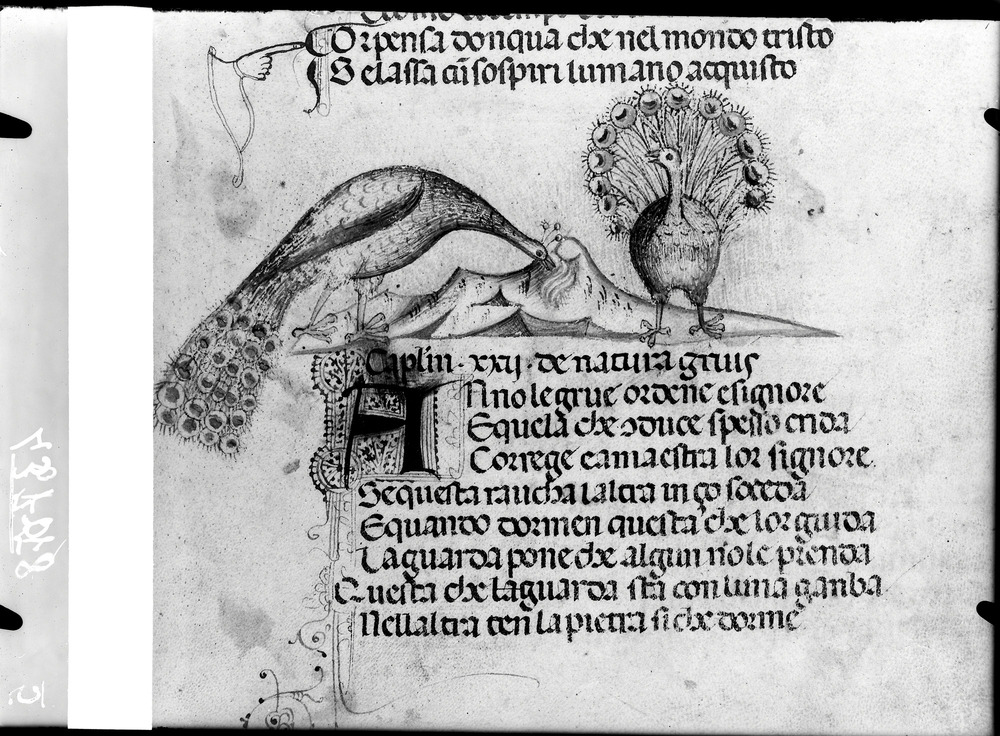 Or pensa donqua che nel mondo tristo
E lassa cū sospiri lumano acquisto
Caplm · xxij · de natura gruis
Ano le grue ordene e signore
E quela che ɔduce spesso crida
Correge e amaestra lor signore.
Se questa raucha laltra in ço soceda
E quando dormen questa che lor guida
La guarda pone che algun nō le prenda
Questa che la guarda sta con luna ganba
Nellaltra ten la pietra si che dorme